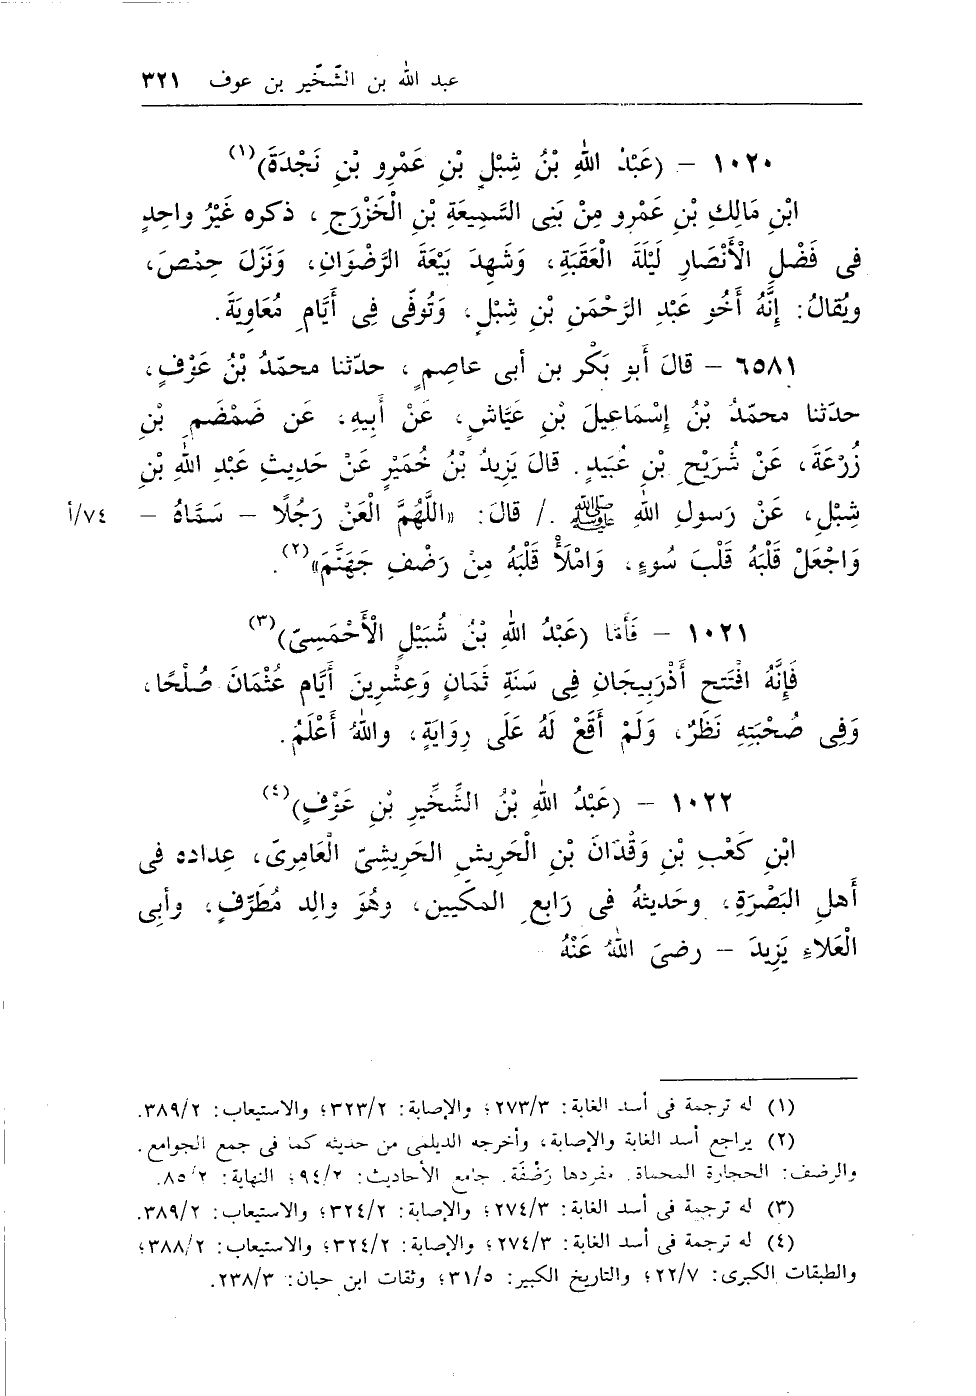 عبد الله بن الشّخّير بن عوف ٣٢١
١٠٢٠ – (عَبْدُ اللهِ بْنُ شِبْلِ بْنِ عَمْرِو بْنِ نَجْدَةَ)(١)
ابْنِ مَالِكِ بْنِ عَمْرِو مِنْ بَنِى السَّمِيعَةِ بْنِ الْخَزْرَجِ، ذكره غَيْرُ واحِدٍ
فى فَضْلِ الْأَنْصَارِ لَيْلَةَ الْعَقَبَةِ، وَشَهِدَ بَيْعَةَ الرَّضْوَانِ، وَنَزَلَ حِمْصَ،
ويُقالُ: إِنَّهُ أَخُو عَبْدِ الرَّحْمَنِ بْنِ شِبْلٍ، وَتُوفِّى فِى أَيَّامِ مُعَاوِيَةَ.
٦٥٨١ – قالَ أَبو بَكْر بن أبى عاصِمٍ، حدّثنا محمّدُ بْنُ عَوْفٍ،
حدّثنا محمّدُ بْنُ إِسْمَاعيلَ بْنِ عَيَّاش، عَنْ أَبيهِ، عَن ضَمْضَمِ بْنِ
زُرْعَةَ، عَنْ شُرَيْحِ بْنِ عُبَيدٍ. قالَ يَزِيدُ بْنُ خُمَيْرٍ عَنْ حَدِيثِ عَبْدِ اللهِ بْنِ
شِبْلٍ، عَنْ رَسولِ اللهِ ﷺ ./ قالَ: «اللَّهُمَّ الْعَنْ رَجُلًا – سَمَّاهُ – ٧٤/أ
وَاجْعَلْ قَلْبَهُ قَلْبَ سُوءٍ، وَامْلَأْ قَلْبَهُ مِنْ رَضْفِ جَهَنَّمَ»(٢).
١٠٢١ – فَأَمّا (عَبْدُ اللهِ بْنُ شُبَيْلٍ الْأَحْمَسِىّ)(٣)
فَإِنَّهُ افْتَتح أَذْرَبِيجَانِ فِى سَنَةِ ثَمَانٍ وَعِشْرِينَ أَيَّام عُثْمَانَ صُلْحًا،
وَفِى صُحْبَتِهِ نَظَرٌ، وَلَمْ أَقَعْ لَهُ عَلَى رِوَايَةٍ، واللهُ أَعْلَمُ.
١٠٢٢ – (عَبْدُ اللهِ بْنُ الشَّخِّيرِ بْنِ عَوْفٍ)(٤)
ابْنِ كَعْبِ بْنِ وَقْدَانَ بْنِ الْحَرِيشِ الحَرِيشِىّ الْعَامِرِىّ، عِداده فى
أَهلِ البَصْرَةِ، وحَديثهُ فى رَابِعِ المكّيين، وهُوَ والِد مُطَرِّفٍ، وأَبِى
الْعَلاءِ يَزِيدَ – رضىَ اللهُ عَنْهُ
(١) له ترجمة فى أسد الغابة: ٢٧٣/٣؛ والإصابة: ٣٢٣/٢؛ والاستيعاب: ٣٨٩/٢.
(٢) يراجع أسد الغابة والإصابة، وأخرجه الديلمى من حديثه كما فى جمع الجوامع.
والرضف: الحجارة المحماة. مفردها رَضْفَة. جامع الأحاديث: ٩٤/٢؛ النهاية: ٨٥/٢.
(٣) له ترجمة فى أسد الغابة: ٢٧٤/٣؛ والإصابة: ٣٢٤/٢؛ والاستيعاب: ٣٨٩/٢.
(٤) له ترجمة فى أسد الغابة: ٢٧٤/٣؛ والإصابة: ٣٢٤/٢؛ والاستيعاب: ٣٨٨/٢؛
والطبقات الكبرى: ٢٢/٧؛ والتاريخ الكبير: ٣١/٥؛ وثقات ابن حبان: ٢٣٨/٣.